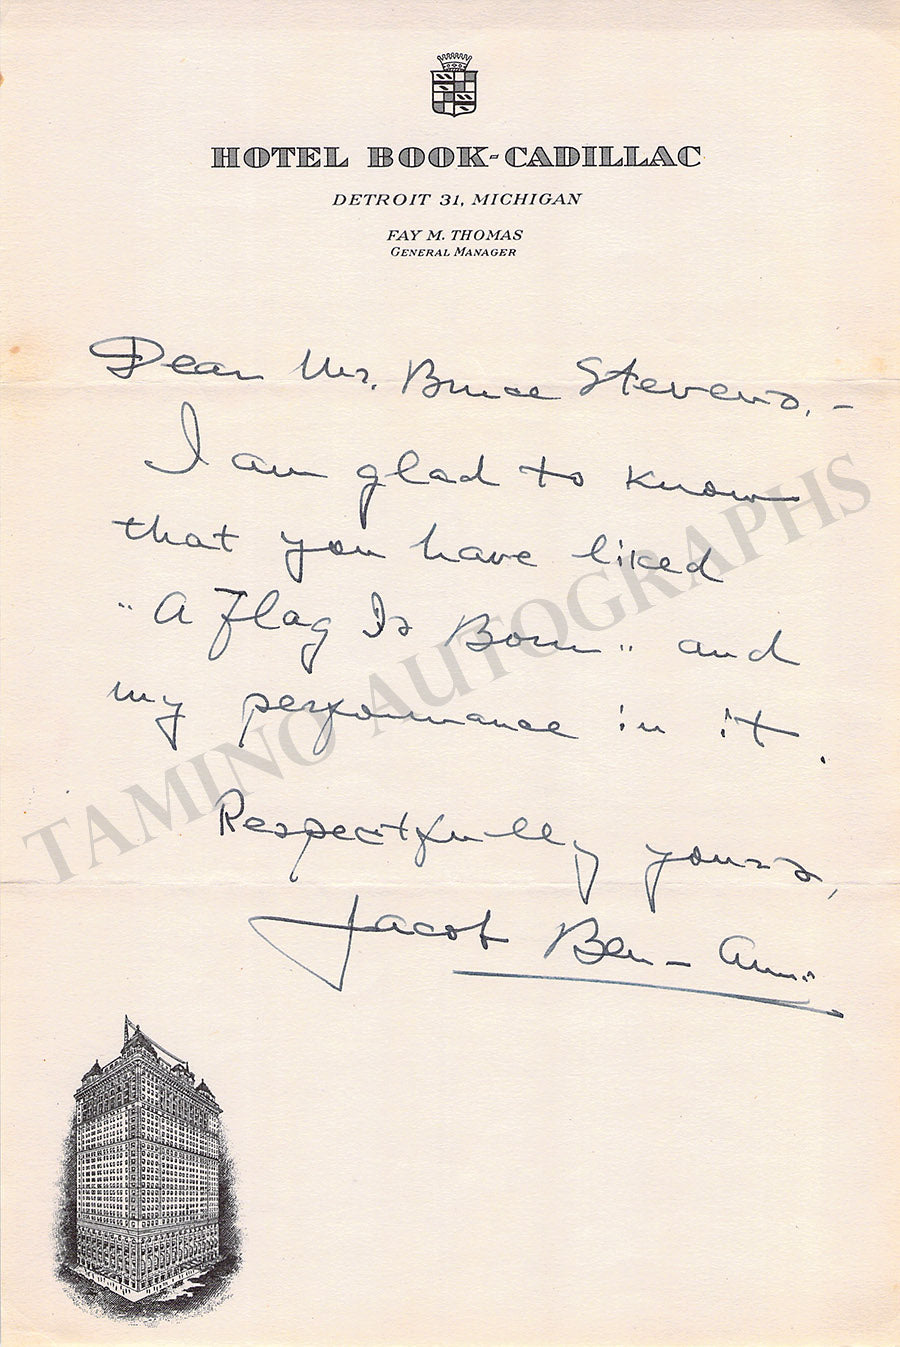 HOTEL BOOK-CADILLAC
DETROIT 31, MICHIGAN
FAY M. THOMAS
GENERAL MANAGER
Dear Mr. Bruce Stevens, -
I am glad to know
that you have liked
"A Flag Is Born" and
my performance in it.
Respectfully yours,
Jacob Ben-Ami
TAMINO AUTOGRAPHS